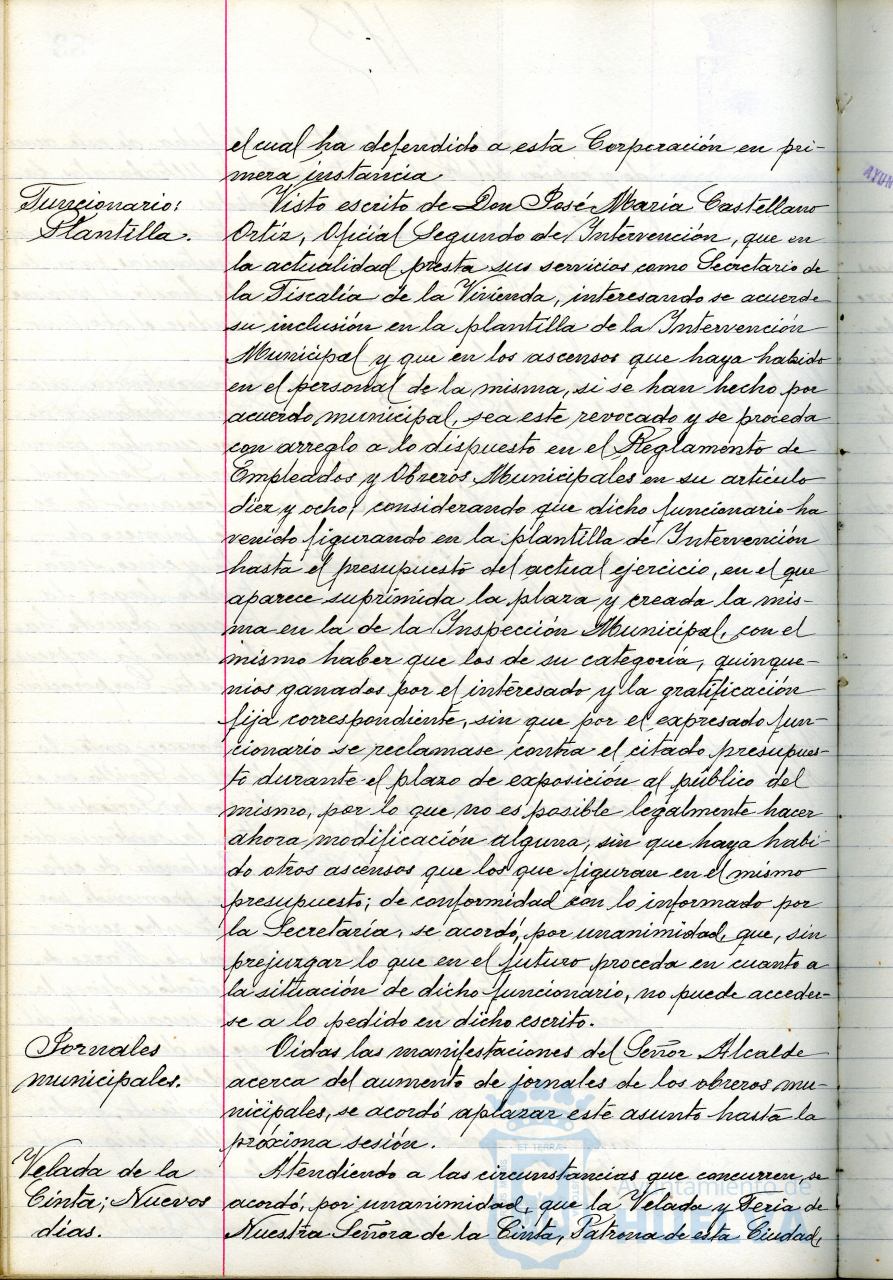 el cual ha defendido a esta Corporación en pri-
mera instancia
Funcionario:
Plantilla.
Visto escrito de Don José María Castellano
Ortiz, Oficial Segundo de Intervención, que en
la actualidad presta sus servicios como Secretario de
la Fiscalía de la Vivienda, interesando se acuerde
su inclusión en la plantilla de la Intervención
Municipal y que en los ascensos que haya habido
en el personal de la misma, si se han hecho por
acuerdo municipal, sea este revocado y se proceda
con arreglo a lo dispuesto en el Reglamento de
Empleados y Obreros Municipales en su artículo
diez y ocho; considerando que dicho funcionario ha
venido figurando en la plantilla de Intervención
hasta el presupuesto del actual ejercicio, en el que
aparece suprimida la plaza y creada la mis-
ma en la de la Inspección Municipal, con el
mismo haber que los de su categoría, quinque-
nios ganados por el interesado y la gratificación
fija correspondiente, sin que por el expresado fun-
cionario se reclamase contra el citado presupues-
to durante el plazo de exposición al público del
mismo, por lo que no es posible legalmente hacer
ahora modificación alguna, sin que haya habi-
do otros ascensos que los que figuran en el mismo
presupuesto; de conformidad con lo informado por
la Secretaría, se acordó, por unanimidad, que, sin
prejuzgar lo que en el futuro proceda en cuanto a
la situación de dicho funcionario, no puede acceder-
se a lo pedido en dicho escrito.
Jornales
municipales.
Oidas las manifestaciones del Señor Alcalde
acerca del aumento de jornales de los obreros mu-
nicipales, se acordó aplazar este asunto hasta la
próxima sesión.
Velada de la
Cinta; Nuevos
dias.
Atendiendo a las circunstancias que concurren, se
acordó, por unanimidad, que la Velada y Feria de
Nuestra Señora de la Cinta, Patrona de esta Ciudad,
ET TERRAE
Ayuntamiento de
HUELVA
AYUN